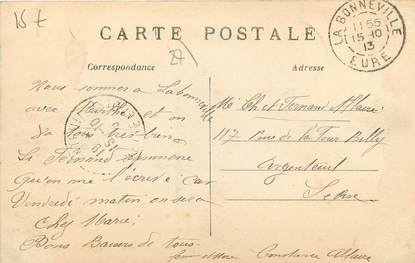 15 t
CARTE POSTALE
27
Correspondance
Adresse
LA BONNEVILLE
11 55
15-10
13
EURE
Nous sommes a Labonneville
avec Marthe et on
va tous très bien
Si Fernand
qu'on me l'écrive car
Vendredi matin on sera
chez Marie
Bons Baisers de tous
Constance Allaire
Mr Ch et Fernand Allaire
117 Rue de la Tour Billy
Argenteuil